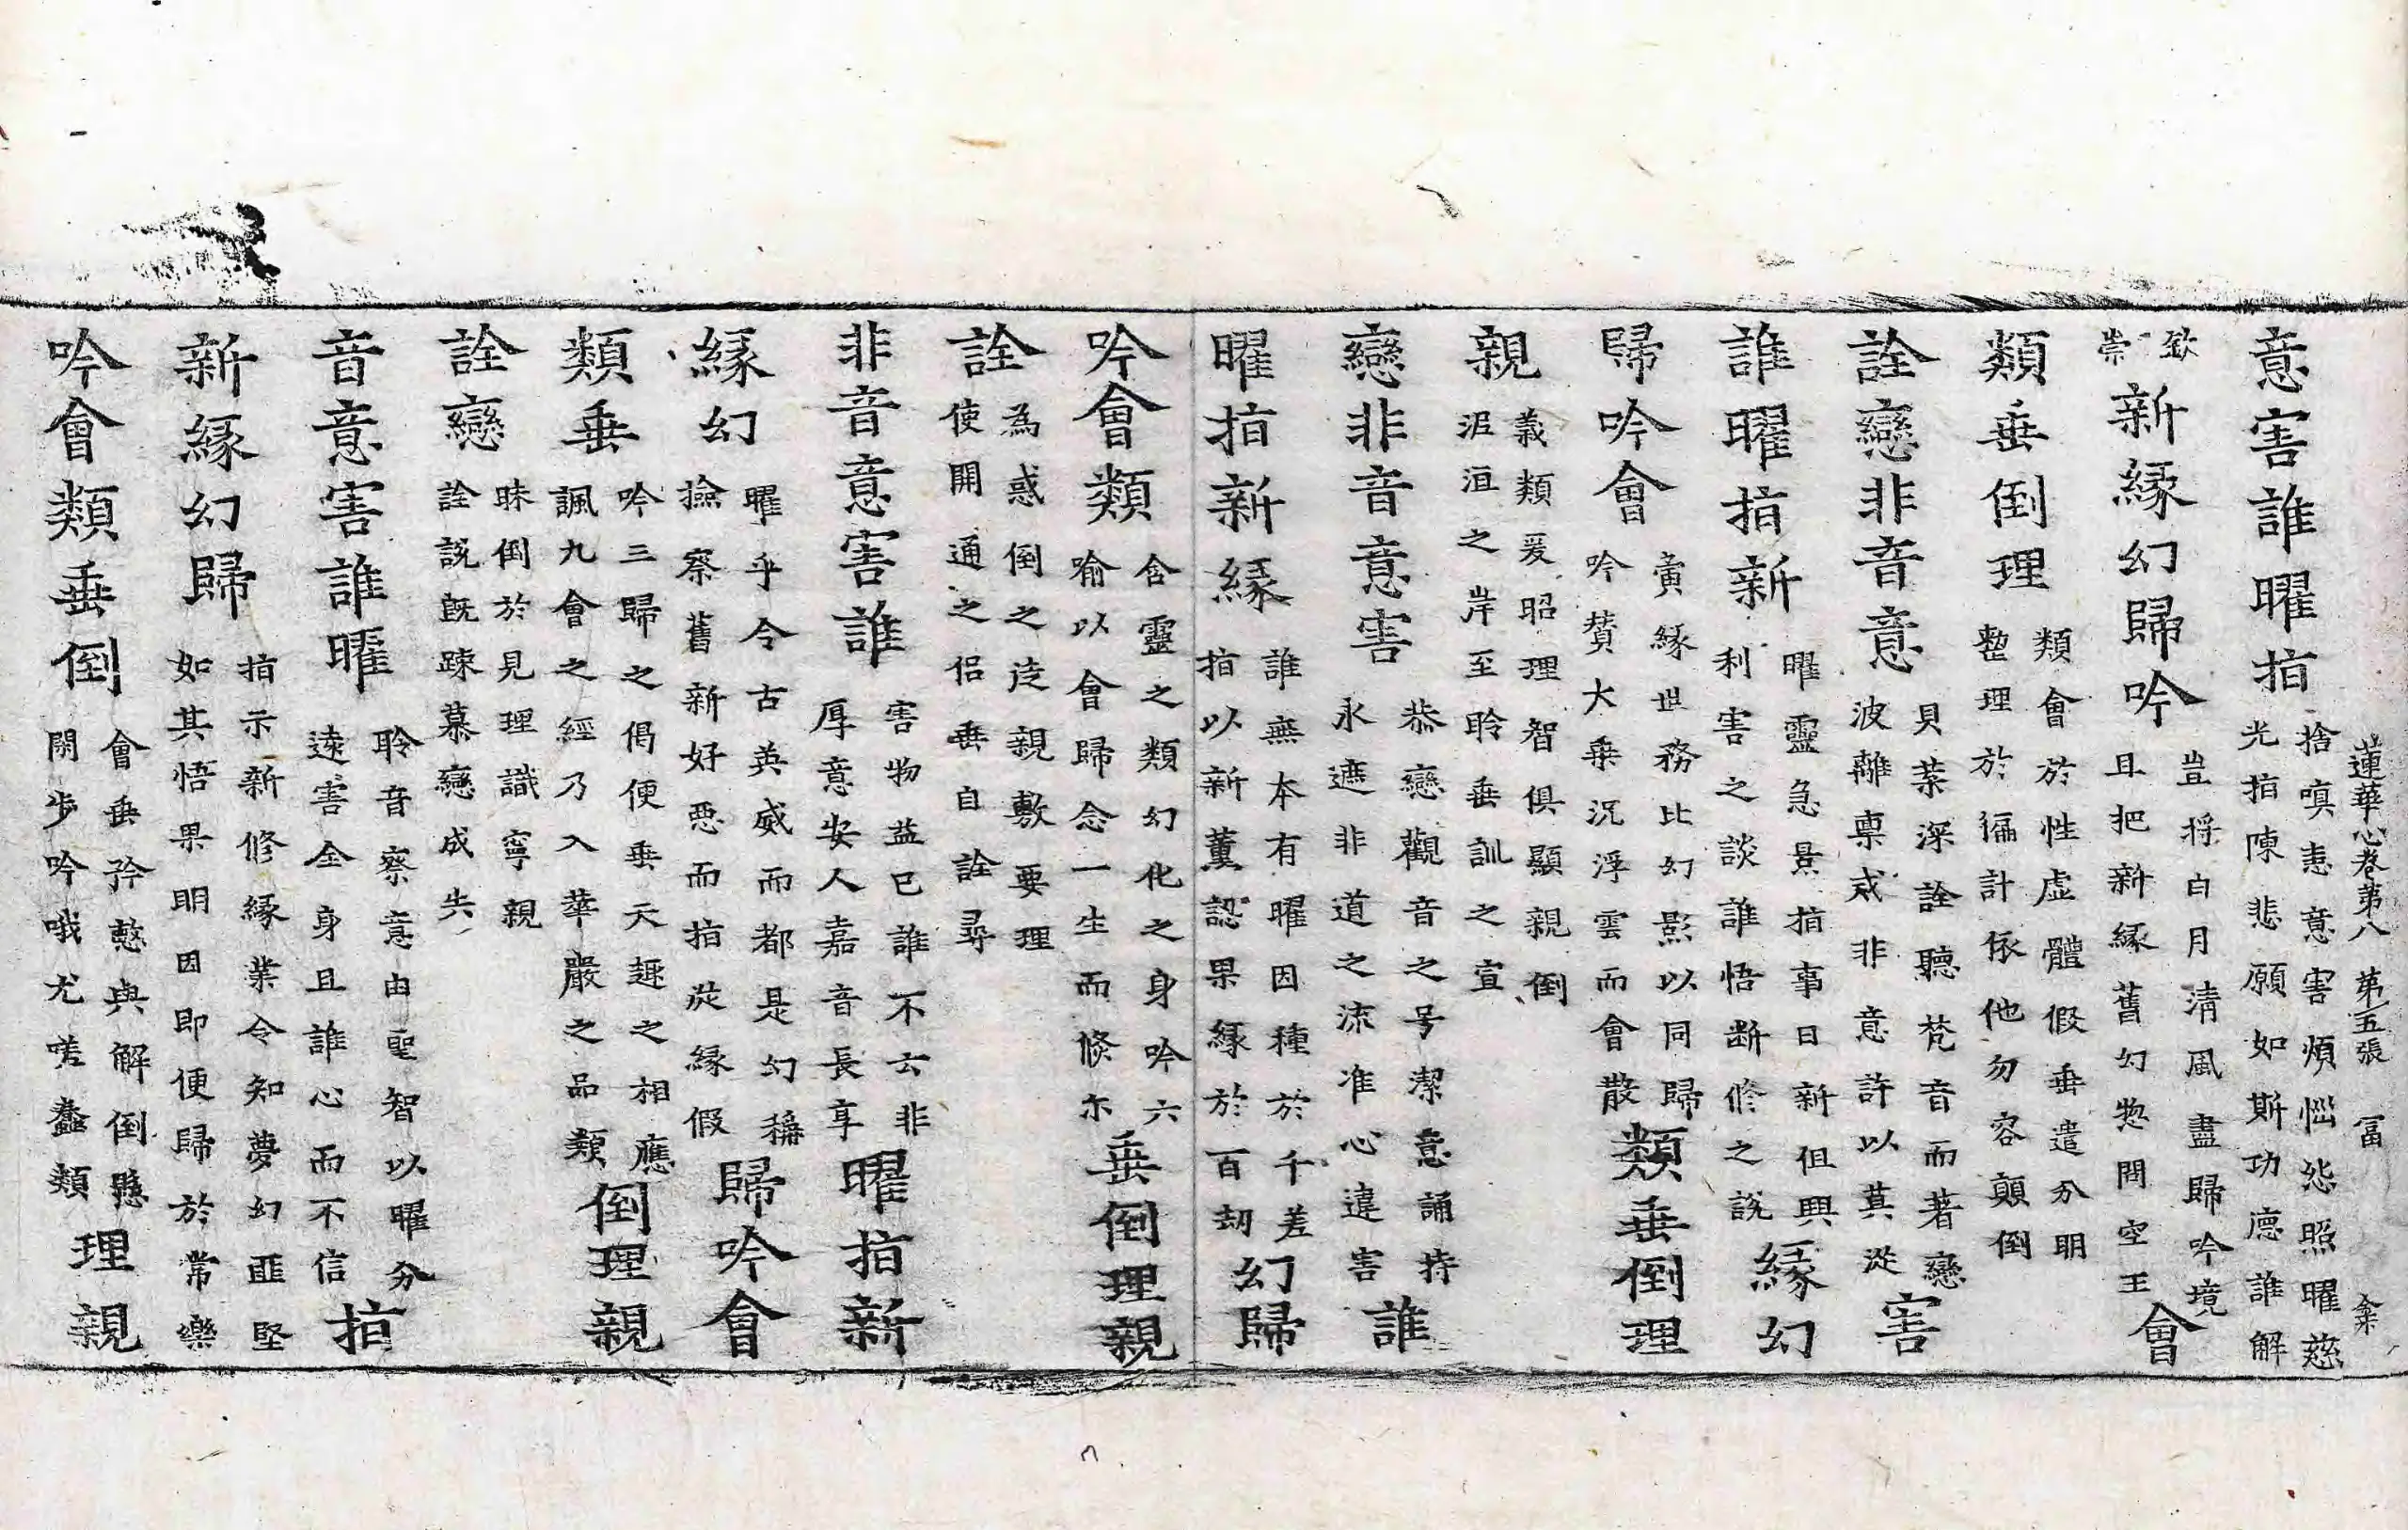 蓮華心卷第八 第五張 冨
意害誰曜指 捨嗔恚意害煩惱怨照曜慈
光指陳悲願如斯功德誰解
欽
崇 新緣幻歸吟 豈將白月清風盡歸吟境
且把新緣舊幻惣問空王 會
類垂倒理 類會於性虛體假垂遣分明
整理於徧計依他勿容顛倒
詮戀非音意 貝葉深詮聽梵音而著戀
波離稟戒非意許以莫從 害
誰曜指新 曜靈急景指事日新但興
利害之談誰悟斷修之說 緣幻
歸吟會 寅緣世務比幻影以同歸
吟贊大乗沉浮雲而會散 類垂倒理
親 義類爰昭理智俱顯親倒
泥洹之岸至聆垂訓之宣
戀非音意害 恭戀觀音之号潔意誦持
永遮非道之流准心違害 誰
曜指新緣 誰無本有曜因種於千差
指以新薰認果緣於百劫 幻歸
吟會類 含靈之類幻化之身吟六
喻以會歸念一生而倏尒 垂倒理親
詮 為惑倒之迷親敷要理
使開通之侶垂自詮尋
非音意害誰 害物益己誰不云非
厚意安人嘉音長享 曜指新
緣幻 曜乎今古英威而都是幻稱
撿察舊新好惡而指從緣假 歸吟會
類垂 吟三歸之偈便垂天趣之相應
諷九會之經乃入華嚴之品類 倒理親
詮戀 昧倒於見理識寧親
詮說旣踈慕戀成失
音意害誰曜 聆音察意由聖智以曜分
遠害全身且誰心而不信 指
新緣幻歸 指示新修緣業令知夢幻匪堅
如其悟果明因即便歸於常樂
吟會類垂倒 會垂矜慜與解倒懸
閑步吟哦尤嗟蠢類 理親